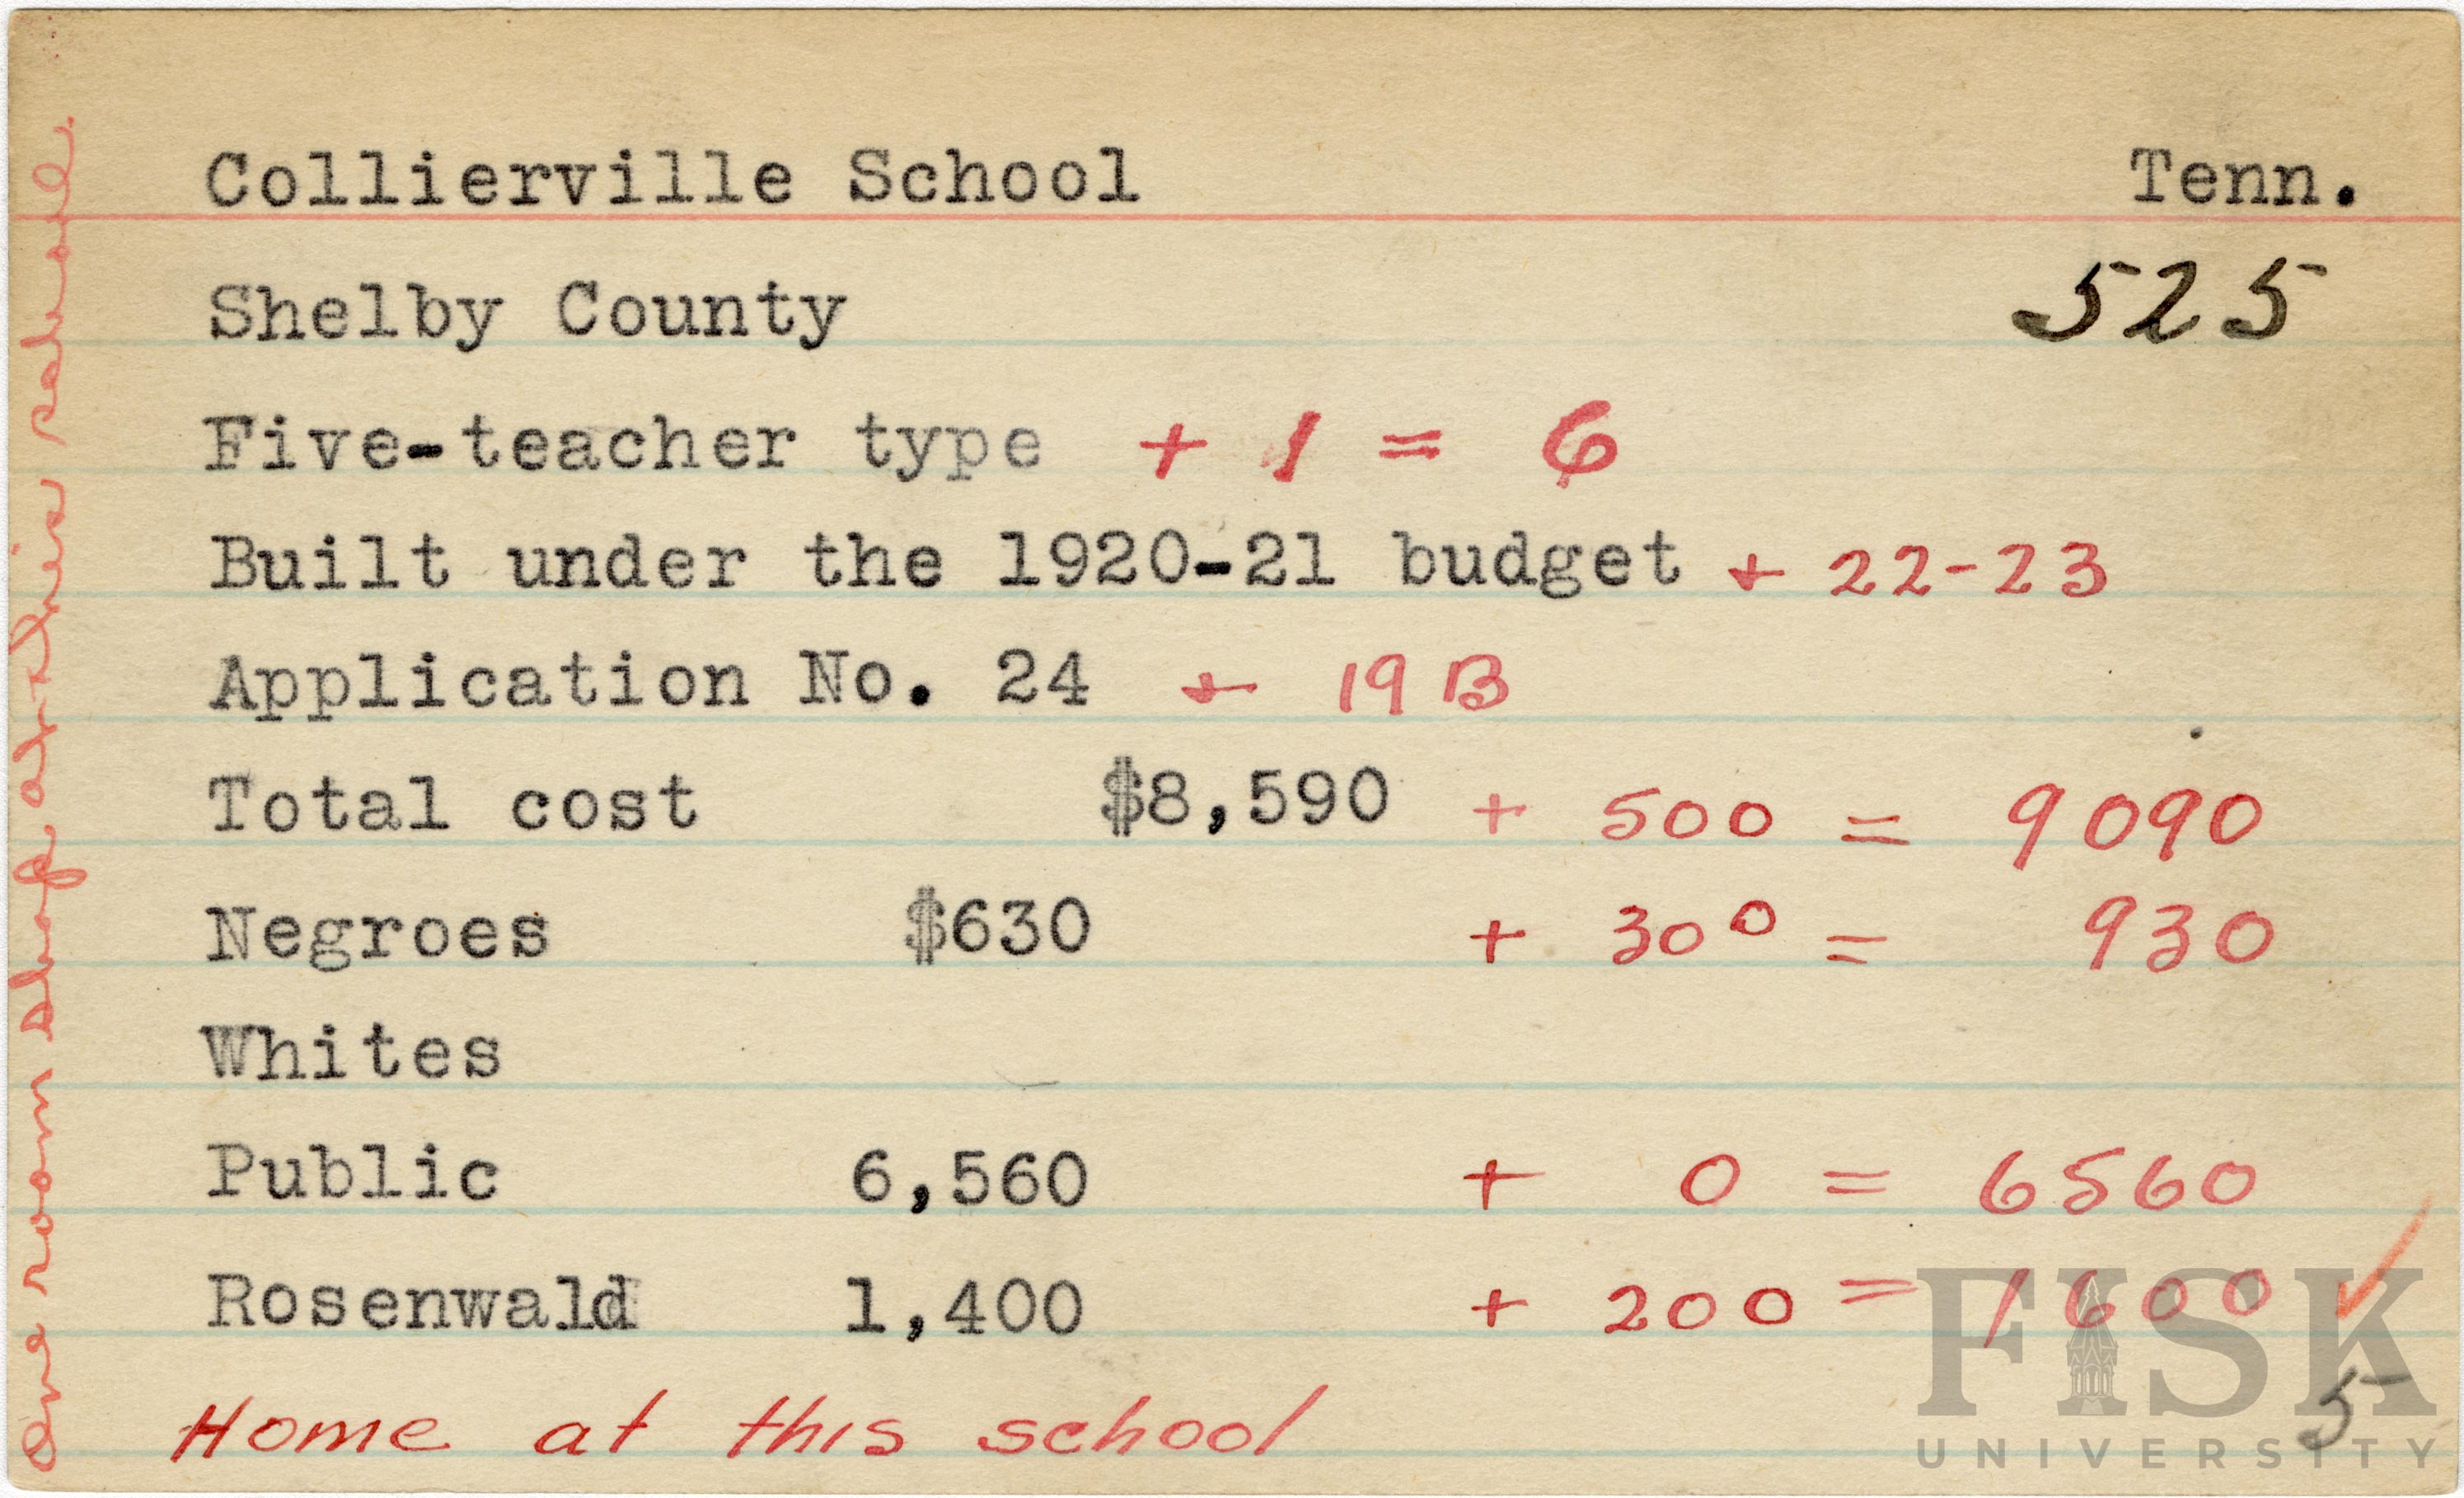 Collierville School Tenn.
Shelby County 525
Five-teacher type + 1 = 6
Built under the 1920-21 budget + 22-23
Application No. 24 + 19 B
Total cost $8,590 + 500 = 9090
Negroes $630 + 300 = 930
Whites
Public 6,560 + 0 = 6560
Rosenwald 1,400 + 200 = 1600 ✓
5
Home at this school
One room shop at this school.
FISK
UNIVERSITY